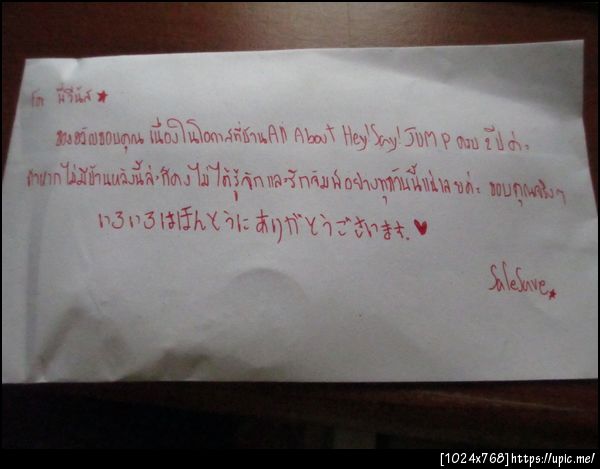 โต พี่วีนัส ★
ของขวัญขอบคุณ เนื่องในโอกาสที่บ้าน All About Hey! Say! JUMP ครบ 2 ปี ค่ะ
ถ้าหากไม่มีบ้านหลังนี้ล่ะก็คงไม่ได้รู้จักและรักจัมพ์อย่างทุกวันนี้แน่เลยค่ะ ขอบคุณจริงๆ
いろいろはほんとうにありがとうございます. ♥
SaleSave ★
[1024x768]https://upic.me/